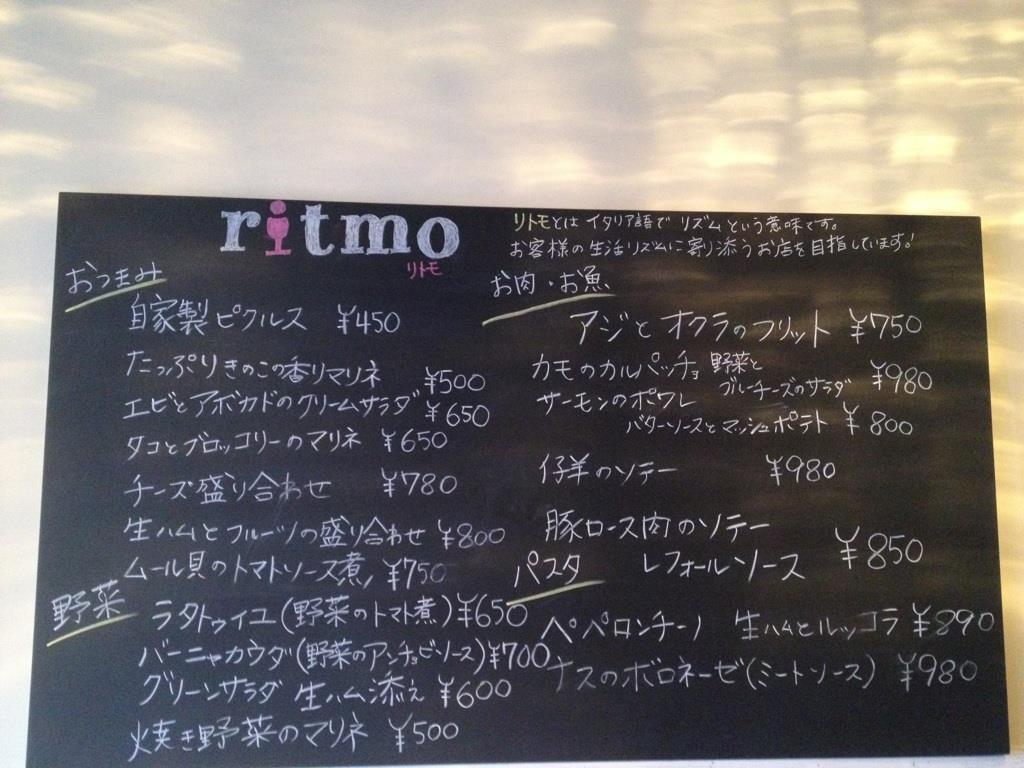 ritmo
リトモ
リトモとは イタリア語で リズム という意味です。
お客様の生活リズムに寄り添うお店を目指しています!
おつまみ
自家製ピクルス ¥450
たっぷりきのこの香りマリネ ¥500
エビとアボカドのクリームサラダ ¥650
タコとブロッコリーのマリネ ¥650
チーズ盛り合わせ ¥780
生ハムとフルーツの盛り合わせ ¥800
ムール貝のトマトソース煮 ¥750
野菜
ラタトゥイユ(野菜のトマト煮) ¥650
バーニャカウダ(野菜のアンチョビソース) ¥700
グリーンサラダ 生ハム添え ¥600
焼き野菜のマリネ ¥500
お肉・お魚
アジとオクラのフリット ¥750
カモのカルパッチョ 野菜と
ブルーチーズのサラダ ¥980
サーモンのポワレ
バターソースとマッシュポテト ¥800
仔羊のソテー ¥980
豚ロース肉のソテー
レフォールソース ¥850
パスタ
ペペロンチーノ 生ハムとルッコラ ¥890
ナスのボロネーゼ(ミートソース) ¥980